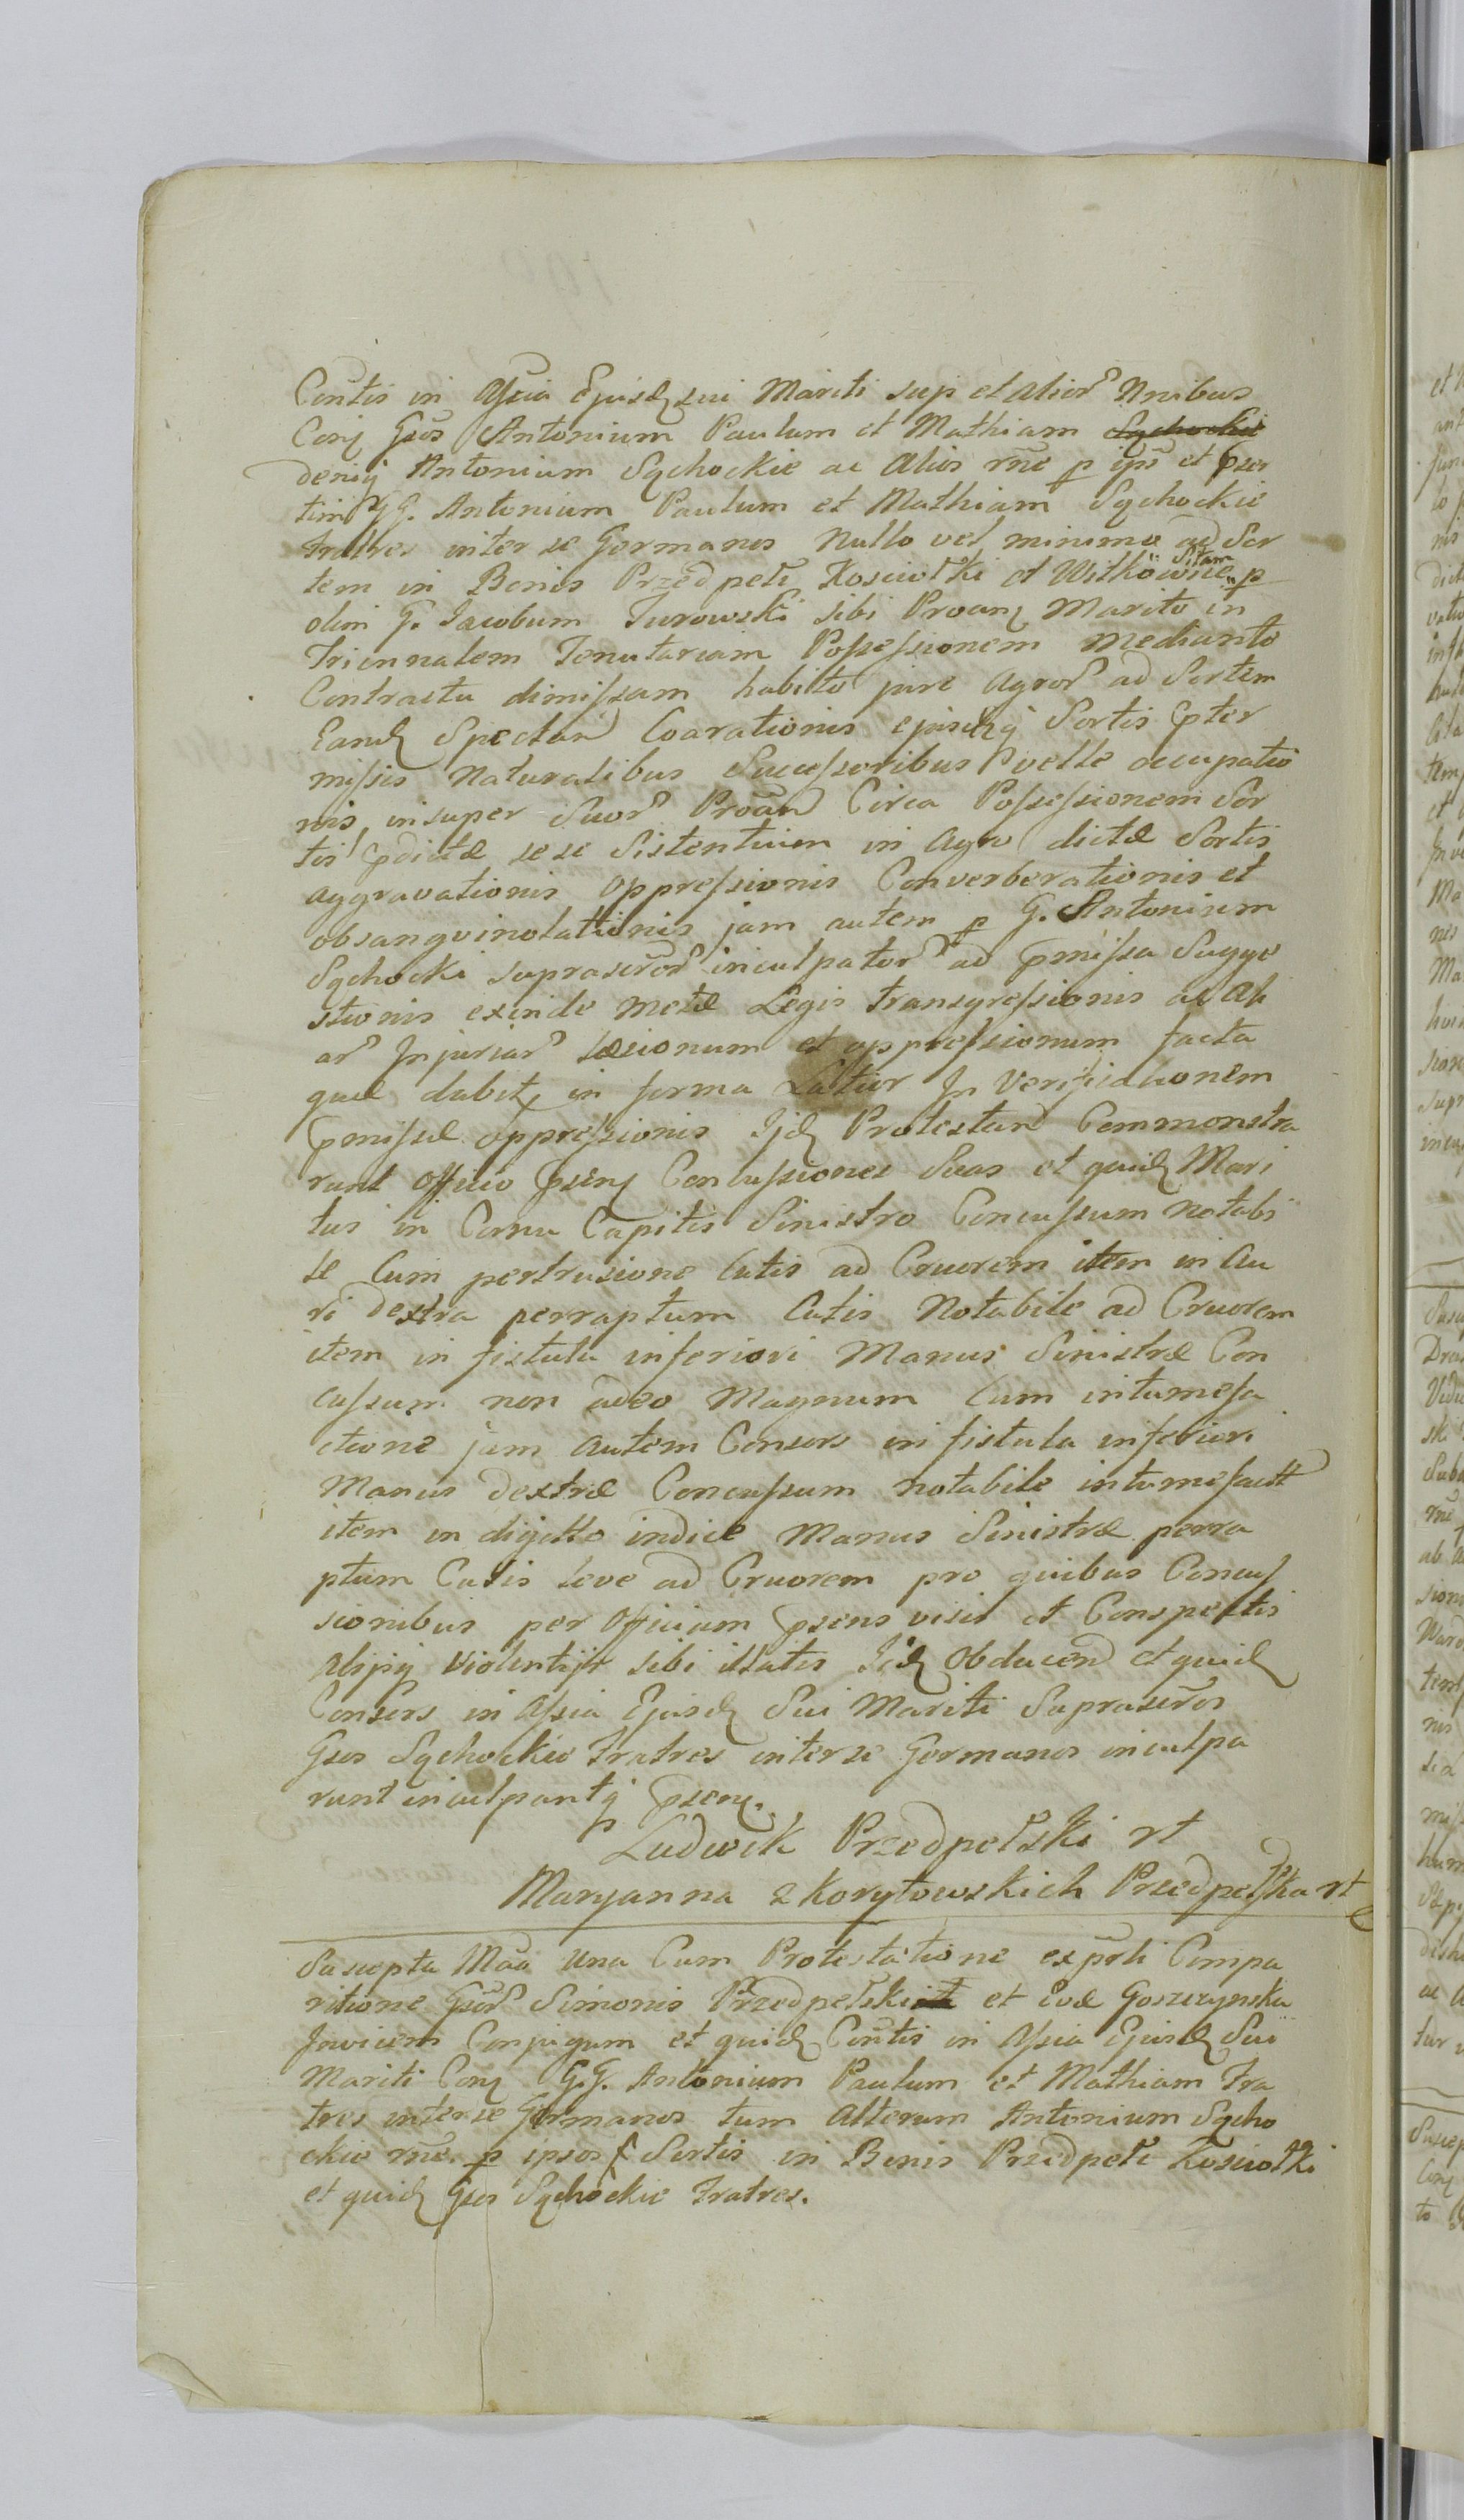 Contis in Assia Ejusd sui Mariti sup et alior Nnibus
Conq Gsos Antonium Paulum et Mathiam Sychockie
deniq Antonium Sychockie ac Alios rñe p ips et pser
tim GG. Antonium Paulum et Mathiam Sychockie
Fratres inter se Germanos Nullo vel minimo ad Sor
tem in Bonis Przedpełe Kosciołki et Witkowne Sitam p
olim G. Jacobum Turowski sibi Proanq Marito in
Triennalem Tenutariam Possessionem Mediante
Contractu dimissam habito jure Agror ad Sortem
Eand Spectan Coarationis ejusdq Sortis pter
missis Naturalibus Successoribus velle occupatio
nis insuper Suor Proan Circa Possessionem Sor
tis pdictæ sese Sistentium in Agro dictæ Sortis
aggravationis oppressionis Converberationis et
obsangvinolationis jam autem p G. Antonium
Sychocki suprascror inculpator ad pmissa Sugge
stionis exinde metæ Legis transgressionis ac Ali
ar Injuriar læsionum et oppressionum facta
quæ dabit in forma Latior In Verificationem
pmissæ oppressionis Ijd Protestan Commonstra
runt Officio psenq Contussiones Suas et quid Mari
tus in Cornu Capitis Sinistro Concussum notabi
le Cum pertrusione Cutis ad Cruorem item in Au
ri dextra perraptum Cutis Notabile ad Cruorem
item in fistula inferiori Manus Sinistræ Con
cussum non adeo Magnum Cum intumefa
ctione jam autem Consors in fistula inferiori
Manus dextræ Concussum notabile intumefact
item in digitto indice Manus Sinistræ perra
ptum Cutis leve ad Cruorem pro quibus Concus
sionibus per Officium psens visis et Conspectis
Alijsq violentijs sibi illatis Iid Obducend et quid
Consors in Assia Ejusd Sui Mariti Suprascros
Gsos Sychockie Fratres inter se Germanos inculpa
runt inculpantq psenq.
Ludwik Przedpełski rt
Maryanna z Korytowskich Przedpełska rt
Suscepta Maa Una Cum Protestatione ex psti Compa
ritione Gsor Simonis Przedpełski et Evæ Goszczynska
Invicem Conjugum et quid Contis in Assia Ejusd Sui
Mariti Conq G.G. Antonium Paulum et Mathiam Fra
tres inter se Germanos tum Alterum Antonium Sycho
ckie rñe. p ipsos Sortis in Bonis Przedpełe Kosciołki
et quid Gsos Sychockie Fratres.